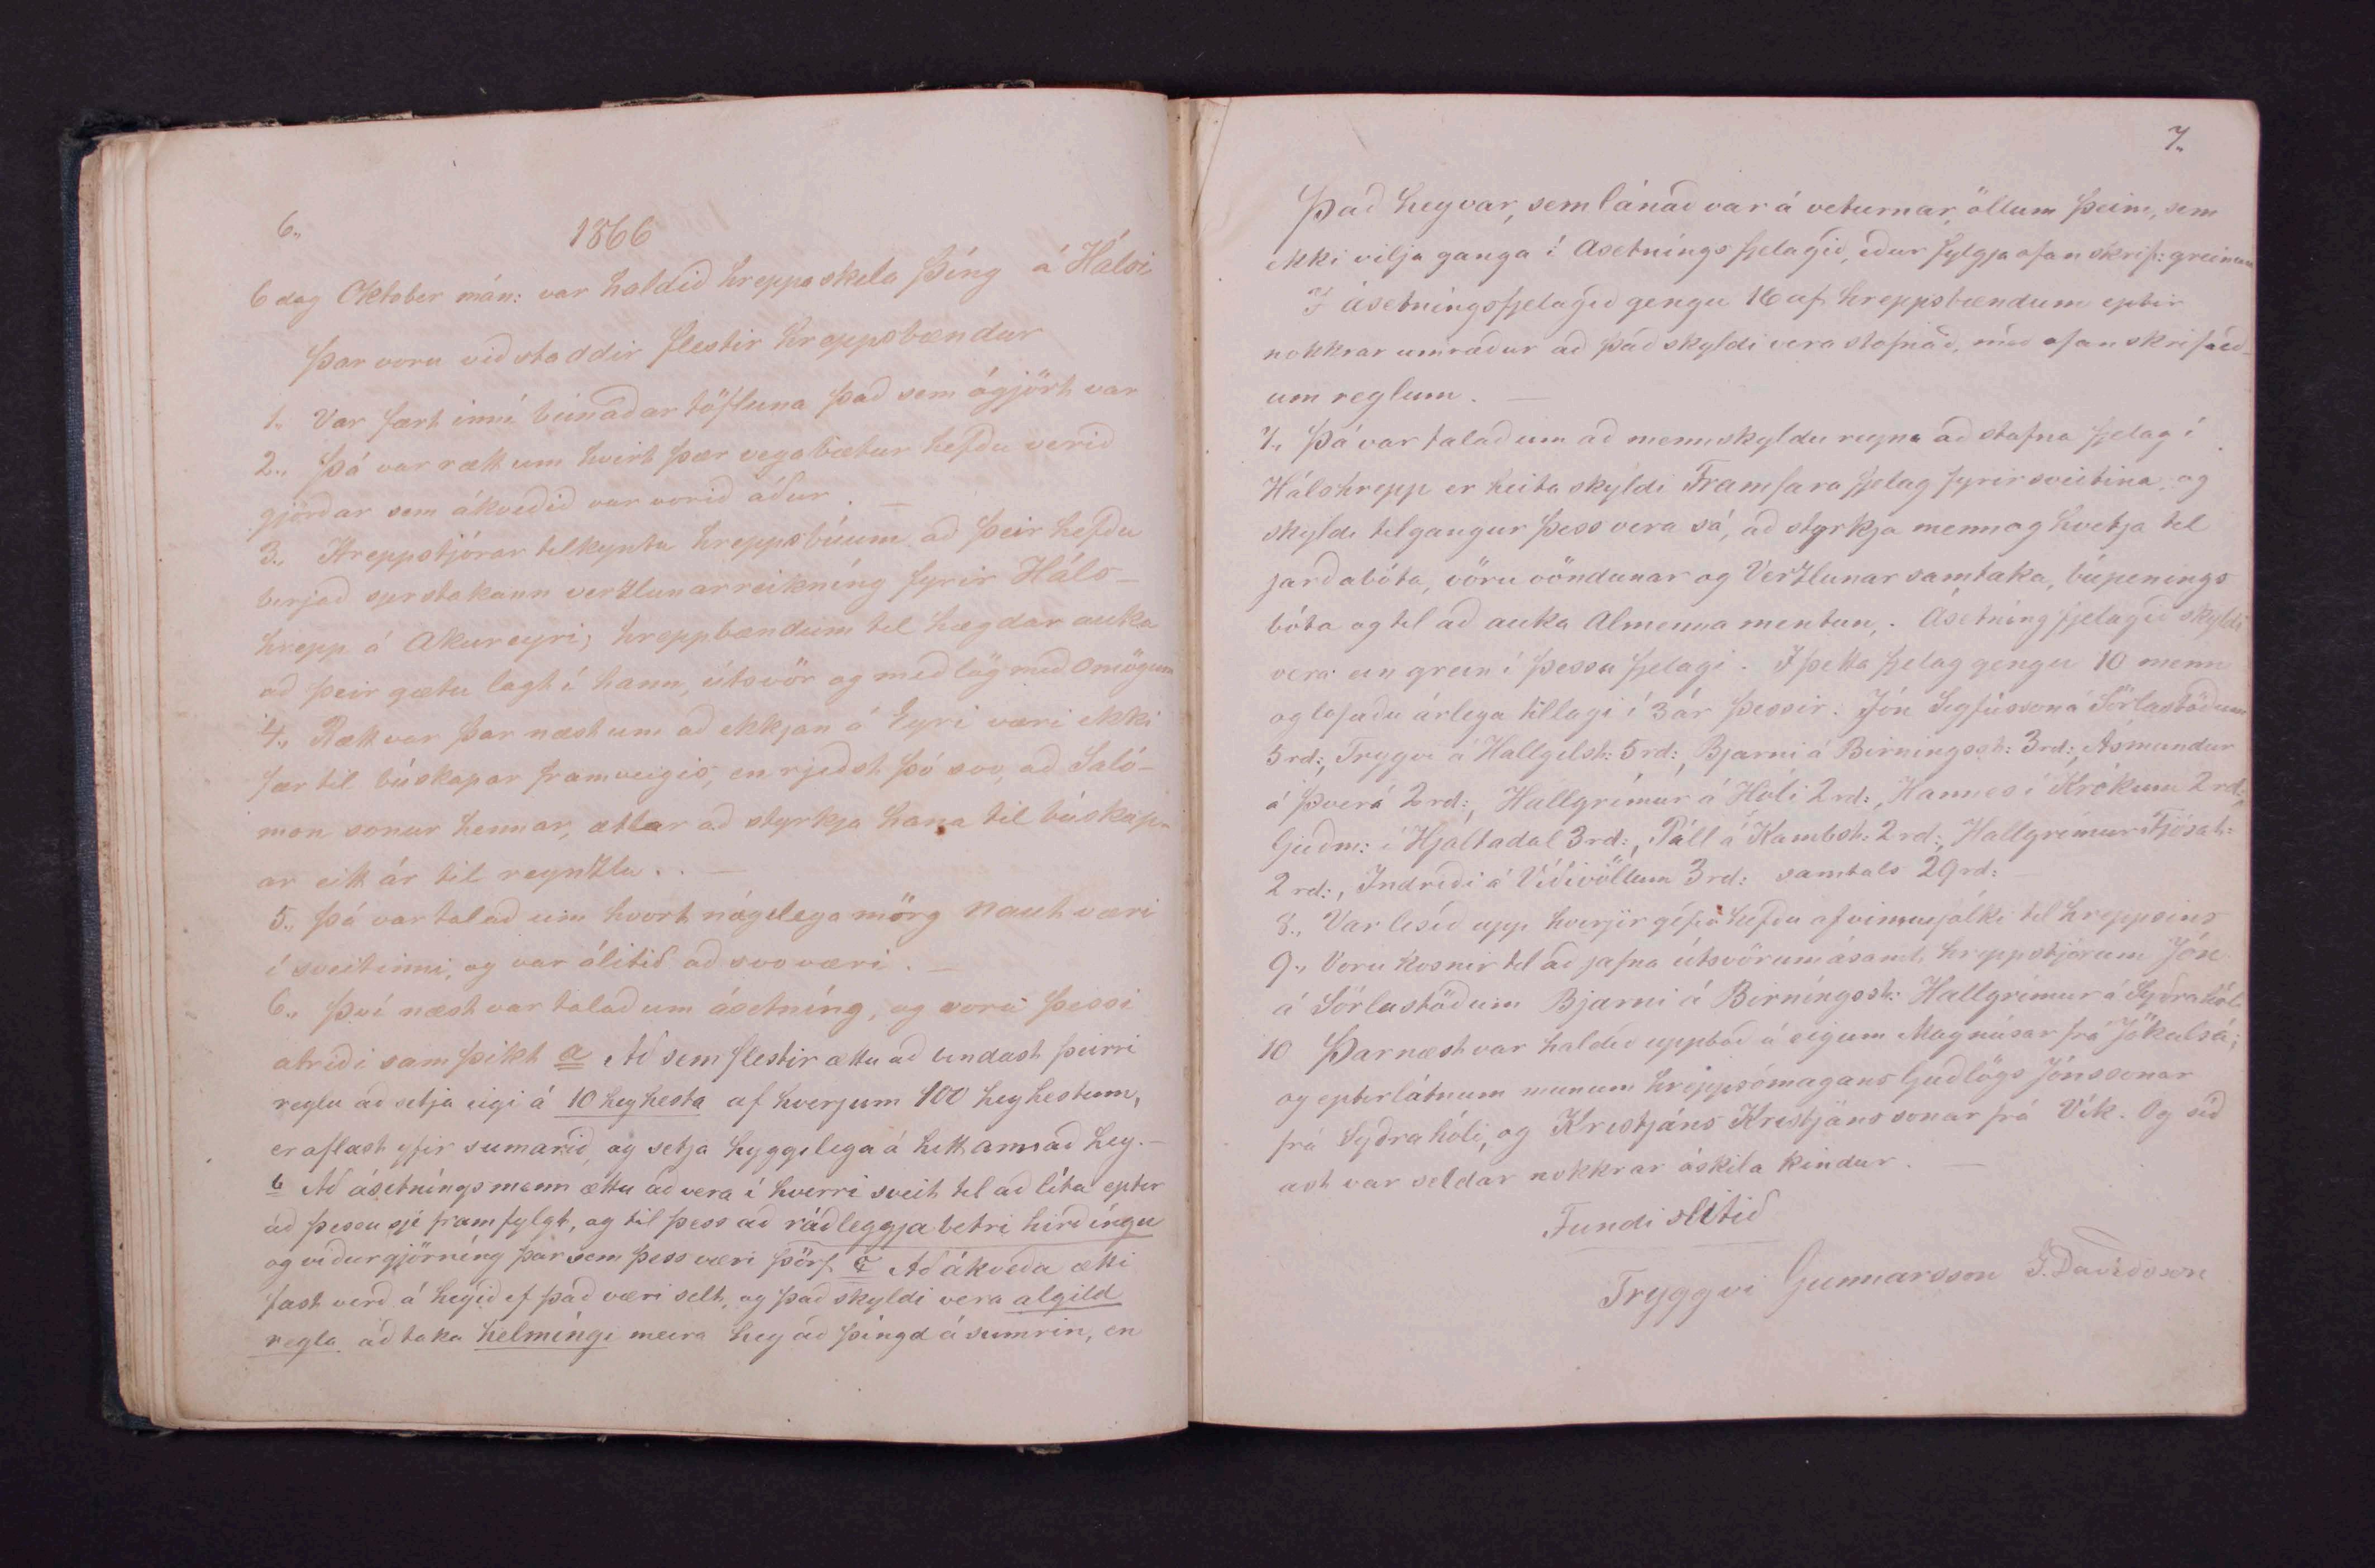 6.,
1866
6 dag Oktober mán: var haldið hreppaskila Þíng á Hálsi
Þar voru viðstaddir flestir hreppsbændur
1. Var fært inní búnaðar töfluna það sem ágjört var
2., Þá var rætt um hvert þær vegabætur hefðu verið
gjörðar sem ákveðið var vorið áður. —
3., Hreppstjórar tilkyntu hreppsbúum að þeir hefðu
byrjað syrstakann verzlunarreikníng fyrir Háls-
hrepp á Akureyri; hreppbændum til hægdar auka
að þeir gætu lagt í hann, útsvör og meðlög með Omögum
4., Rætt var þar næst um að ekkjan á Eyri væri ekki
fær til búskapar framveigis, en rjeðst þó svo, að Saló-
mon sonur hennar, ætlar að styrkja hana til búskap-
ar eitt ár til reynzlu.. —
5., Þá var talað um hvort nægilega mörg naut væri
í sveitinni, og var álitið að svo væri. —
6., Því næst var talað um ásetníng, og voru þessi
atriði samþikt a Að sem flestir ættu að bindast þeirri
reglu að setja eigi á 10 heyhesta af hverjum 100 heyhestum,
er aflast yfir sumarið, og setja hyggilega á hitt annað hey. —
b Að ásetníngsmenn ættu að vera í hverri sveit til að líta eptir
að þessu sje framfylgt, og til þess að ráðleggja betri hirðíngu
og viðurgjörníng þar sem þess væri þörf. c Að ákveða ætti
fast verð á heyið ef það væri selt, og það skyldi vera algild
regla að taka helmíngi meira hey að þingd á sumrin, en
7.,
Það hey var, sem lánað var á veturnar, öllum þeim, sem
ekki vilja ganga í Asetnings fjelagið, eður fylgja ofan skrif: greinum
Í ásetníngsfjelagið gengu 16 af hreppsbændum eptir
nokkrar umræður að það skyldi vera stofnað, með ofan skrifað-
um reglum. —
7., Þá var talað um að menn skyldu reyna að stofna fjelag í
Hálshrepp er heita skyldi Framfara fjelag fyrir sveitina, og
skyldi tilgangur þess vera sá, að styrkja menn og hvetja til
jarðabóta, vöru vöndunar og Verzlunar samtaka, búpenings
bóta og til að auka Almenna mentun,. Ásetníngfjelagið skyldi
vera ein grein í þessu fjelagi. Í þetta fjelag gengu 10 menn
og lofuðu árlega tillagi í 3 ár þessir: Jón Sigfússon á Sörlastöðum
5 rd:, Tryggvi á Hallgilst: 5 rd:, Bjarni á Birningsst: 3 rd:, Asmundur
á Þverá 2 rd:, Hallgrímur á Hóli 2 rd:, Hannes í Krókum 2 rd:,
Guðm: í Hjaltadal 3 rd:, Páll á Kambst: 2 rd:, Hallgrímur Fjósat:
2 rd:, Indriði á Víðivöllum 3 rd: samtals 29 rd:
8., Var lesið upp hverjir gifir hefðu af vinnufólki til hreppsins
9., Voru kosnir til að jafna útsvörum ásamt hreppstjórum Jón
á Sörlastöðum Bjarni á Birníngsst: Hallgrímur á Syðrahól.
10 Þar næst var haldið uppboð á eigum Magnúsar frá Jökulsá;
og eptirlátnum munum hreppsómagans Guðlögs Jónssonar
frá Syðrahóli, og Kristjáns Kristjánssonar frá Vík. Og síð
ast var seldar nokkrar óskila kindur. —
Fundi slitið
Tryggvi Gunnarsson J. Davíðsson